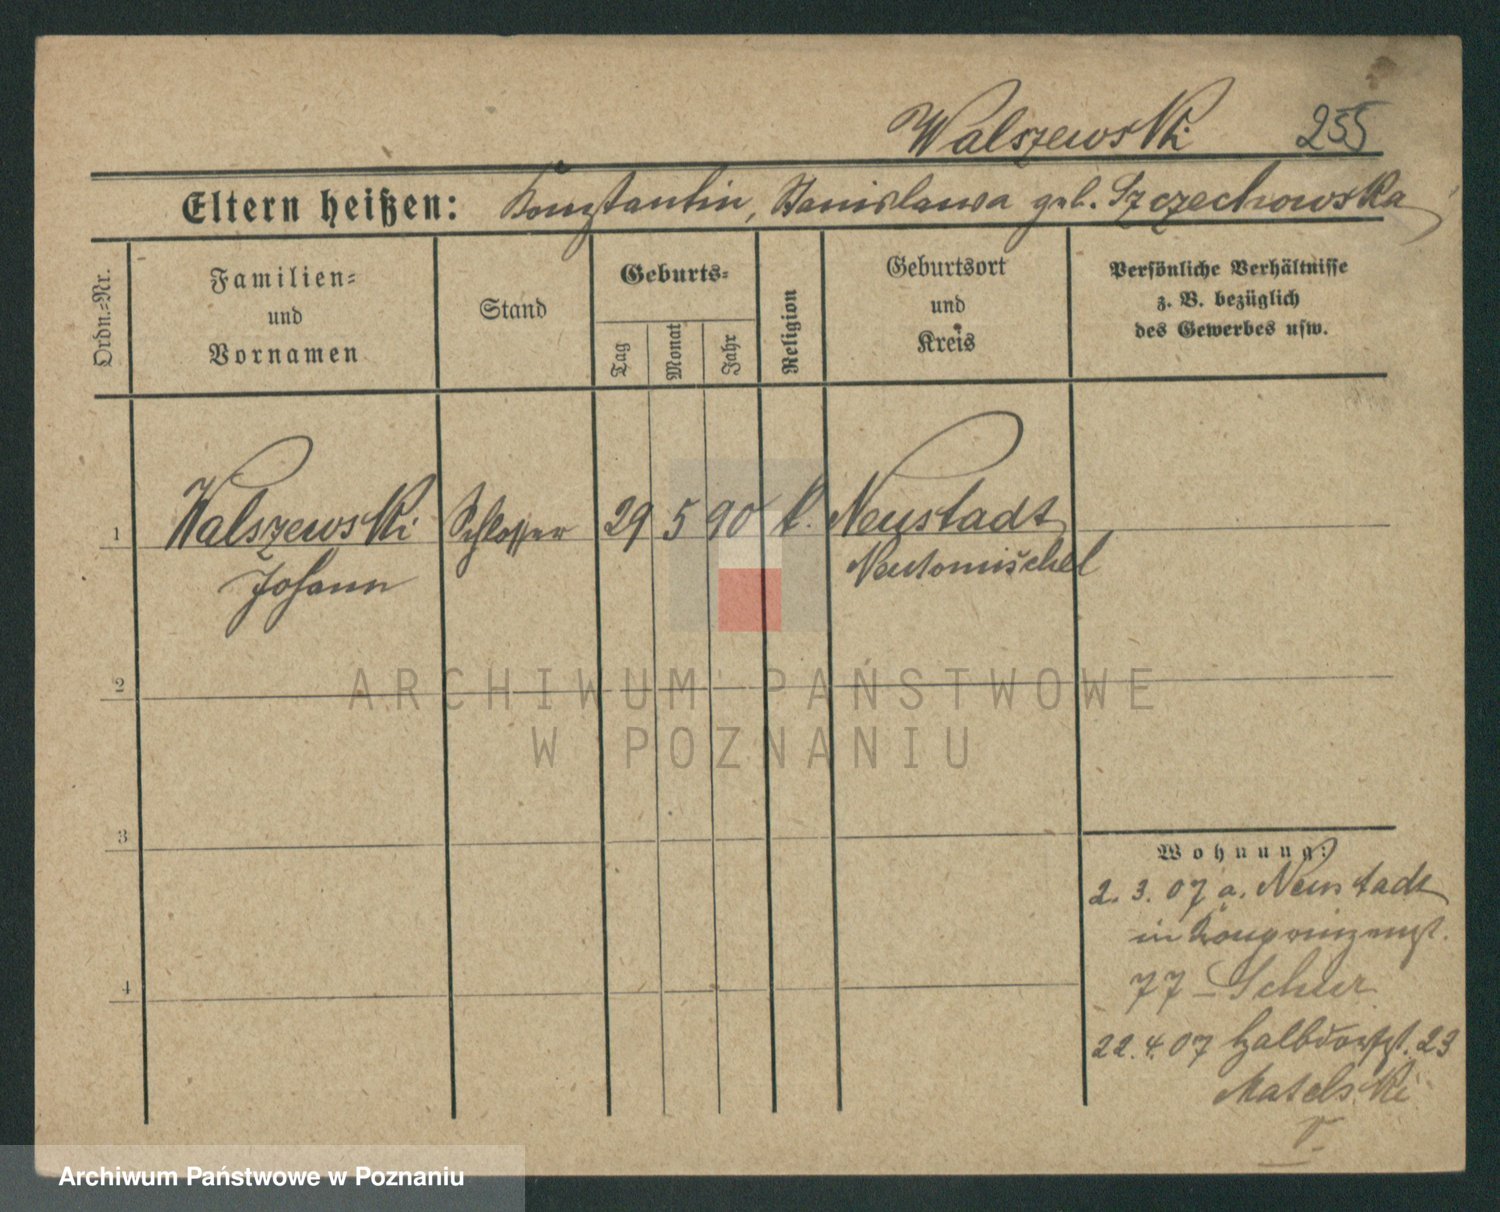 Walszewski 255
Eltern heißen: Konstantin, Stanislawa geb. Szczechowska
Ordn.-Nr.
Familien-
und
Vornamen
Stand
Geburts-
Tag
Monat
Jahr
Religion
Geburtsort
und
Kreis
Persönliche Verhältnisse
z. B. bezüglich
des Gewerbes usw.
1 Walszewski Schlosser 29 5 90 k. Neustadt
Johann Neutomischel
2
3
4
Wohnung:
2. 3. 07 a. Neustadt
in Kronprinzenst.
77 - Schur
22. 4. 07 Halbdorfst. 23
Matelski
V.
ARCHIWUM PAŃSTWOWE
W POZNANIU
Archiwum Państwowe w Poznaniu